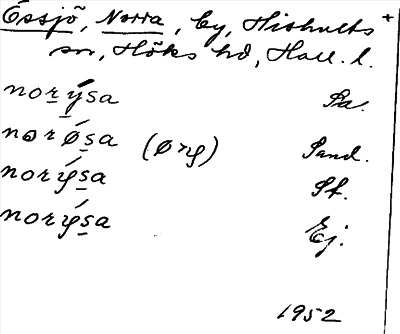 Össjö, Norra, by, Hishults +
sn, Höks hd, Hall. l.
norýsa Sa.
norǿsa (ø>y) Sand.
norýsa St.
norýsa Ej.
1952